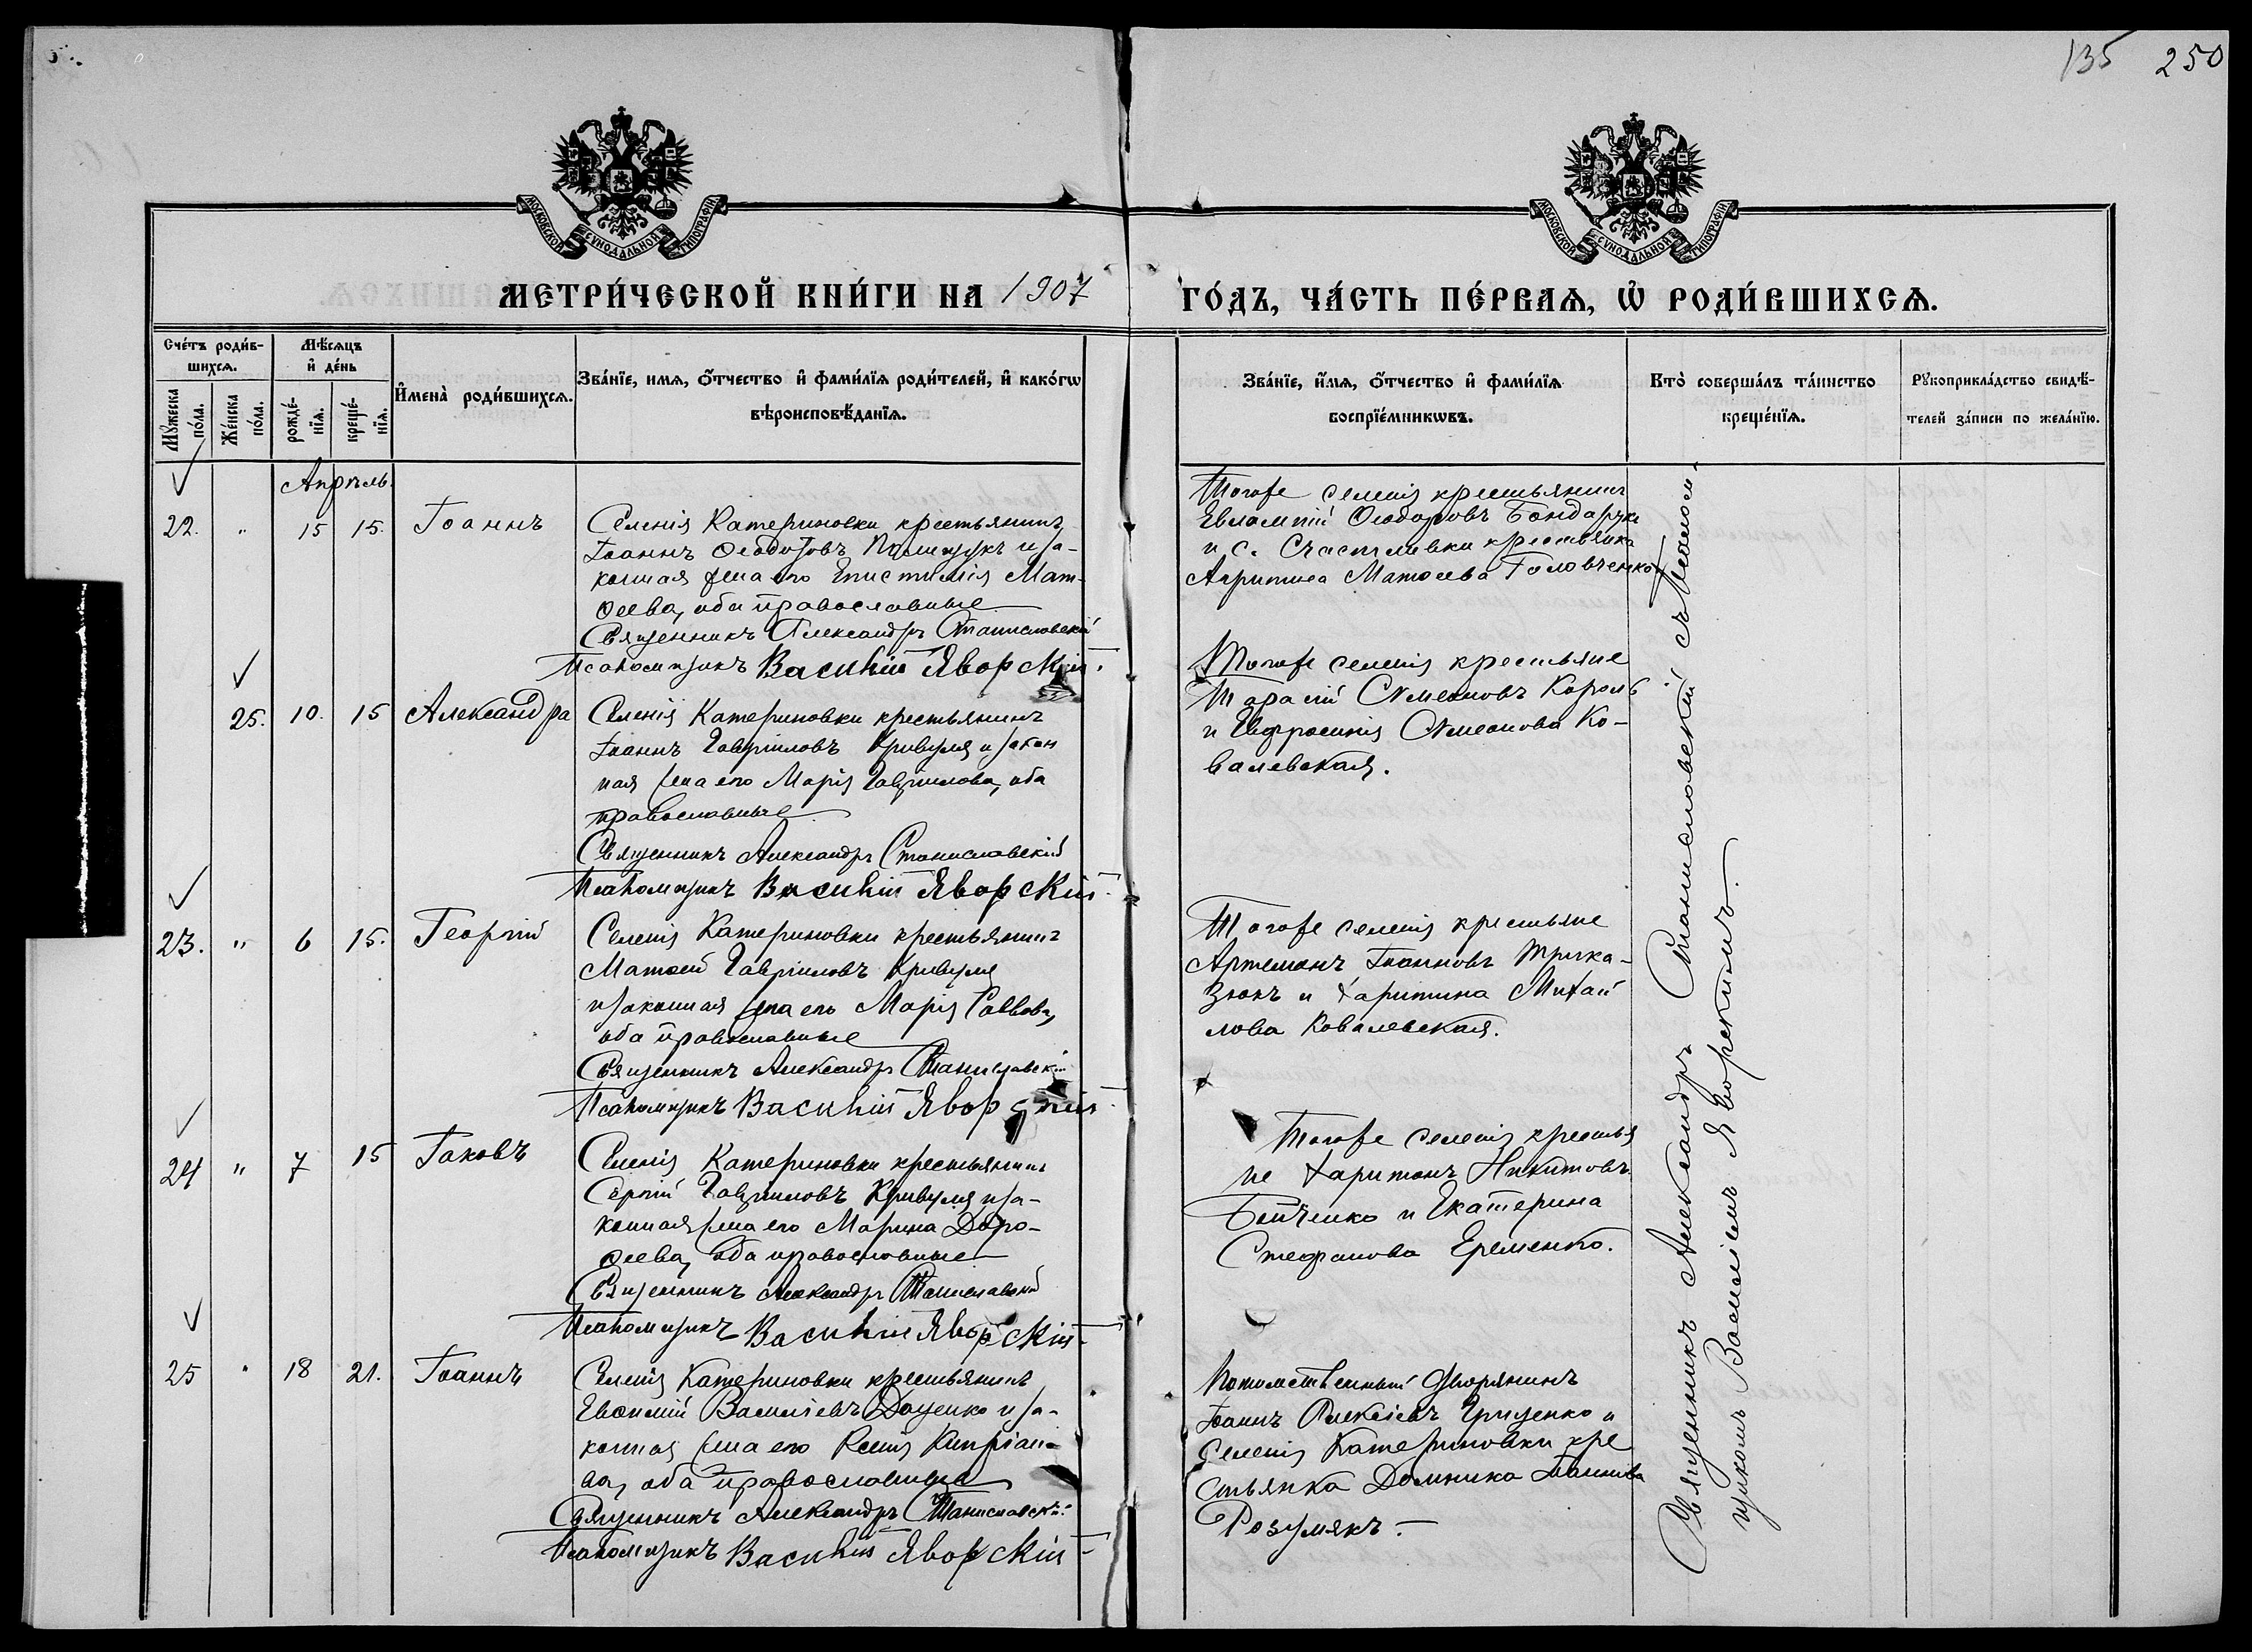 135 250
МОСКОВСКОЙ СУНОДАЛЬНОЙ ТИПОГРАФІИ
МОСКОВСКОЙ СУНОДАЛЬНОЙ ТИПОГРАФІИ
МЕТРИ́ЧЕСКОЙ КНИ́ГИ НА 1907
ГО́ДЪ, ЧА́СТЬ ПЕ́РВАѦ, Ѡ҆ РОДИ́ВШИХСѦ.
Сче́тъ роди́в-
шихсѧ.
Мꙋжеска по́ла.
Же́нска по́ла.
Мѣ́сѧцъ
и҆ де́нь
рожде́-
нїѧ.
креще́-
нїѧ.
И҆мена̀ роди́вшихсѧ.
Зва́нїе, имѧ, ѻ҆́тчество и҆ фами́лїѧ роди́телей, и҆ како́гѡ
вѣроисповѣ́данїѧ.
Зва́нїе, и҆́мѧ, ѻ҆́тчество и҆ фами́лїѧ
воспрїе́мникѡвъ.
Кто̀ соверша́лъ та́инство
креще́нїѧ.
Рꙋкоприкла́дство свидѣ́-
телей за́писи по жела́нїю.
Апрѣль.
22. " 15 15. Іоаннъ
Селенія Катериновки крестьянинъ
Іоаннъ Ѳеодотовъ и за-
конная жена его Епистимія Мат-
ѳеева, оба православные
Священникъ Александръ Станиславскій
Псаломщикъ Василій Яворскій.
Тогоже селенія крестьянинъ
Евлампій Ѳеодоровъ Бондарукъ
и с. Счастливки крестьянка
Агрипина Матѳеева Головченкова
25. 10. 15 Александра
Селенія Катериновки крестьянинъ
Іоаннъ Гавріиловъ Кривуля и закон
ная жена его Марія Гавріилова, оба
православные
Священникъ Александръ Станиславскій
Псаломщикъ Василій Яворскій.
Тогоже селенія крестьяне
Тарасій Сѵмеоновъ Король
и Евфросинія Сѵмеонова Ко-
валевская.
23. " 6 15. Георгій
Селенія Катериновки крестьянинъ
Матѳей Гавріиловъ Кривуля
и законная жена его Марія Саввова,
оба православные
Священникъ Александръ Станиславскій
Псаломщикъ Василій Яворскій
Тогоже селенія крестьяне
Артемонъ Іоанновъ Трика-
зюкъ и Харитина Михаи
лова Ковалевская.
24 " 7 15 Іаковъ
Селенія Катериновки крестьянинъ
Сергій Гавріиловъ Кривуля и за-
конная жена его Марина Доро-
ѳеева, оба православные
Священникъ Александръ Станиславскій
Псаломщикъ Василій Яворскій
Тогоже селенія крестья
не Харитонъ Никитовъ
Бойченко и Екатерина
Стефанова Еременко.
25 " 18 21. Іоаннъ
Селенія Катериновки крестьянинъ
Евѳимій Василіевъ Доценко и за-
конная жена его Ксенія Кипріано-
ва, оба православные
Священникъ Александръ Станиславскій
Псаломщикъ Василій Яворскій
Потомственный дворянинъ
Іоаннъ Алексіевъ Гриценко и
селенія Катериновки кре
стьянка Домника Іоаннова
Розумякъ.
Священникъ Александръ Станиславскій съ Псалом-
щикомъ Василіемъ Яворскимъ.